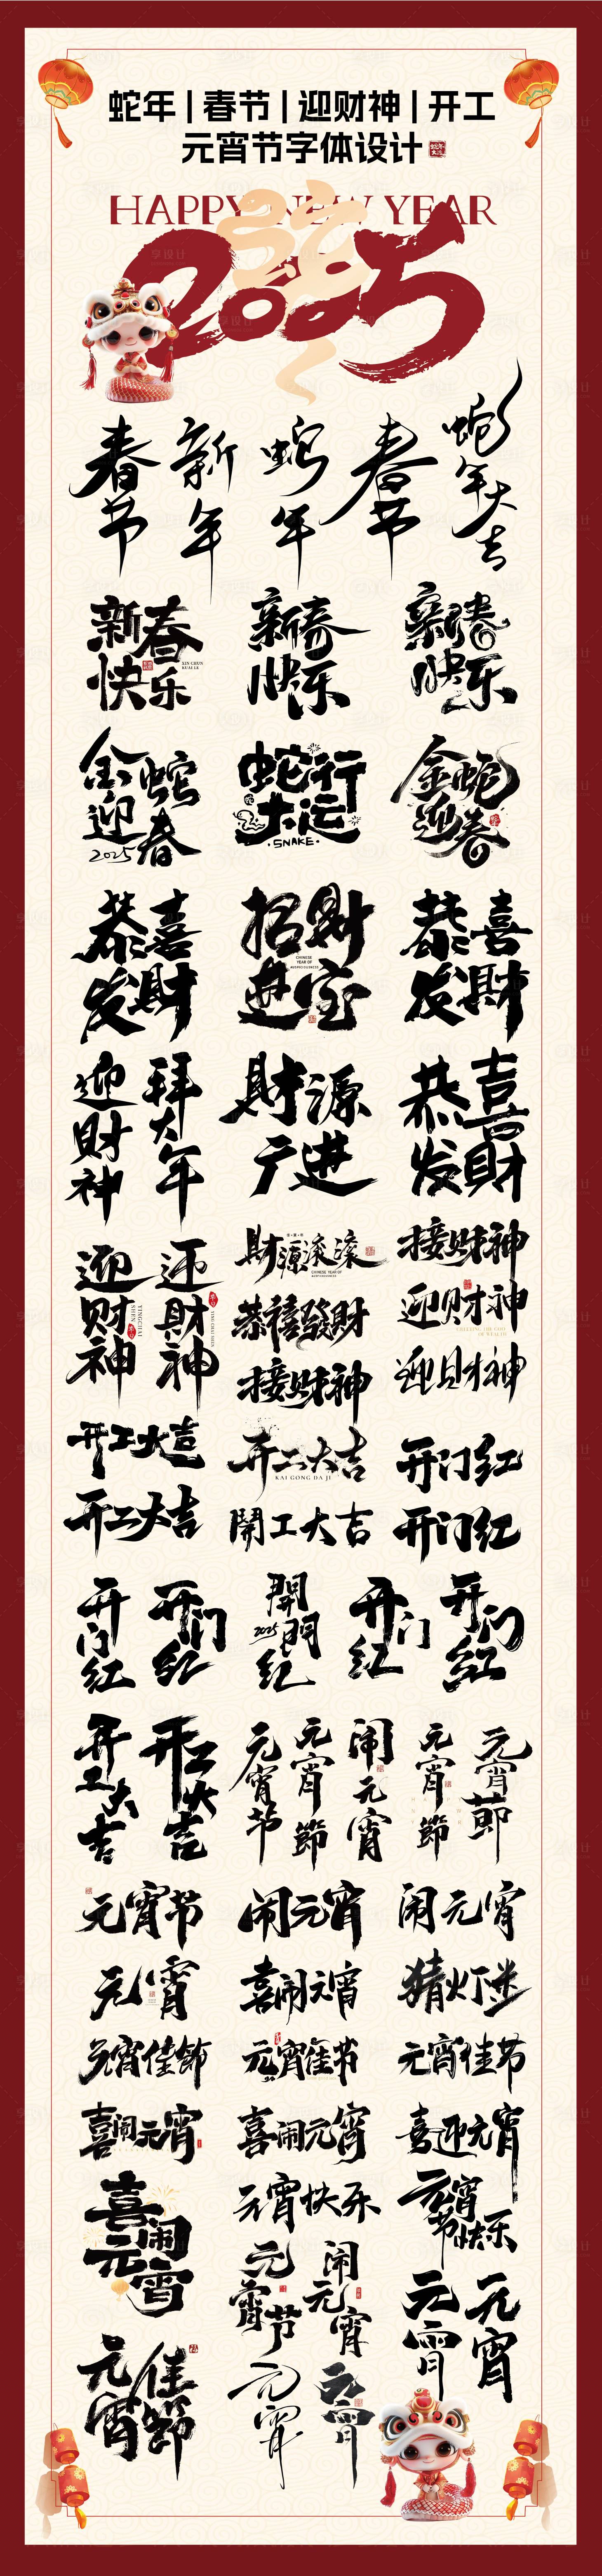 蛇年|春节|迎财神|开工
元宵节字体设计
HAPPY NEW YEAR
2025
春节 新年 蛇年 春节 蛇年大吉
新春快乐 新春快乐 新春快乐
XIN CHUN
KUAI LE
金蛇迎春 蛇行大运 金蛇迎春
2025
SNAKE
恭喜发财 招财进宝 恭喜发财
CHINESE
YEAR OF
AUSPICIOUSNESS
迎财神 拜大年 财源广进 恭喜发财
迎财神 迎财神
YINGCAI
SHEN
YING CAI SHEN
財源滚滚
CHINESE YEAR OF
AUSPICIOUSNESS
恭禧發財
接财神
接财神
迎财神
迎财神
开工大吉 开工大吉 开门红
KAI GONG DA JI
开工大吉 開工大吉 开门红
开门红 开门红 開門红 开门红 开门红
2025
开工大吉 开工大吉 元宵节 元宵節 闹元宵 元宵節 元宵節
元宵节 闹元宵 闹元宵
元宵 喜闹元宵 猜灯迷
元宵佳節 元宵佳节 元宵佳节
喜闹元宵 喜闹元宵 喜迎元宵
喜闹元宵 元宵快乐 元宵节快乐
元宵节 闹元宵 元宵 元宵
元宵佳節 元宵 元宵